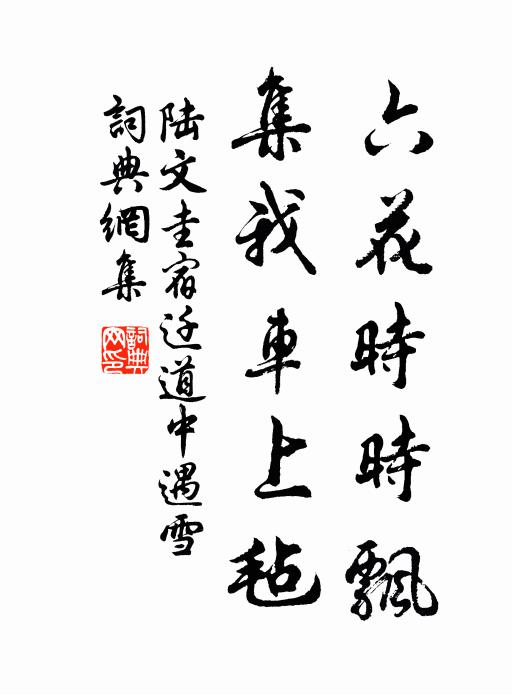 六花時時飄
集我車上毡
陆文圭宿迁道中遇雪
詞典網集
詞典网印